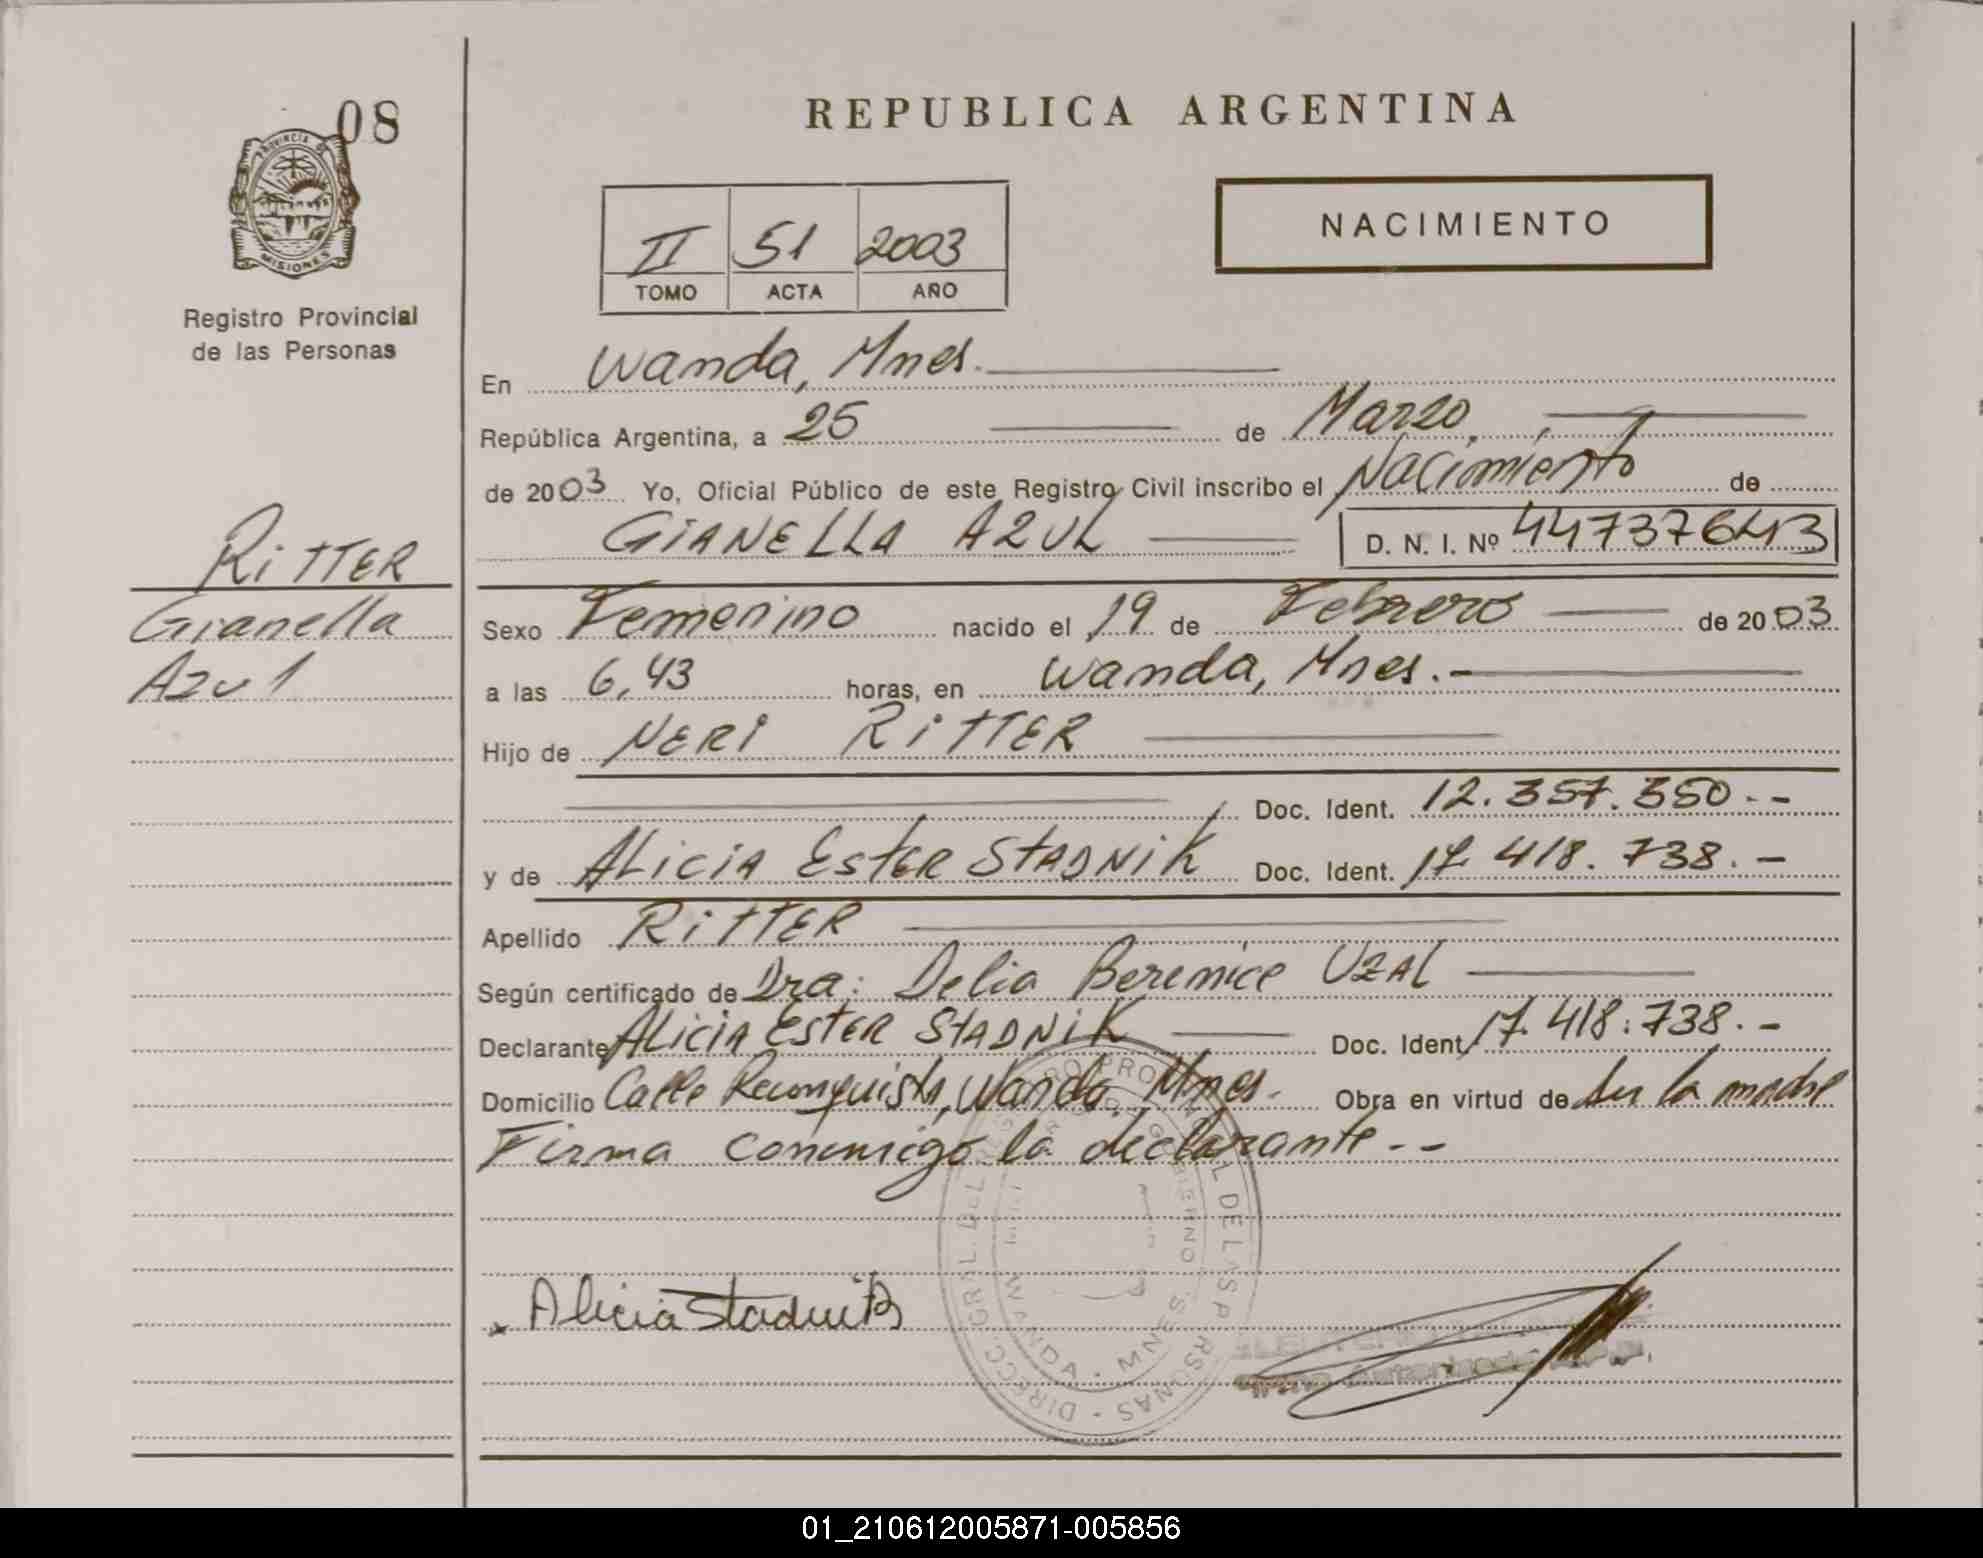 08
PROVINCIA DE
MISIONES
Registro Provincial
de las Personas
RITTER
Gianella
Azul
REPUBLICA ARGENTINA
II 51 2003
TOMO ACTA AÑO
NACIMIENTO
En Wanda, Mnes.
República Argentina, a 25 de Marzo,
de 2003 Yo, Oficial Público de este Registro Civil inscribo el Nacimiento de
GIANELLA AZUL D. N. I. Nº 44737643
Sexo Femenino nacido el 19 de Febrero de 2003
a las 6,43 horas, en Wanda, Mnes.-
Hijo de NERI RITTER
Doc. Ident. 12.357.350.--
y de ALICIA ESTER STADNIK Doc. Ident. 17.418.738.-
Apellido RITTER
Según certificado de Dra: Delia Berenice UZAL
Declarante ALICIA ESTER STADNIK Doc. Ident. 17.418.738.-
Domicilio Calle Reconquista, Wanda, Mnes. Obra en virtud de Ser la madre
Firma conmigo la declarante--
Alicia Stadnik
WANDA - MNES.
01_210612005871-005856